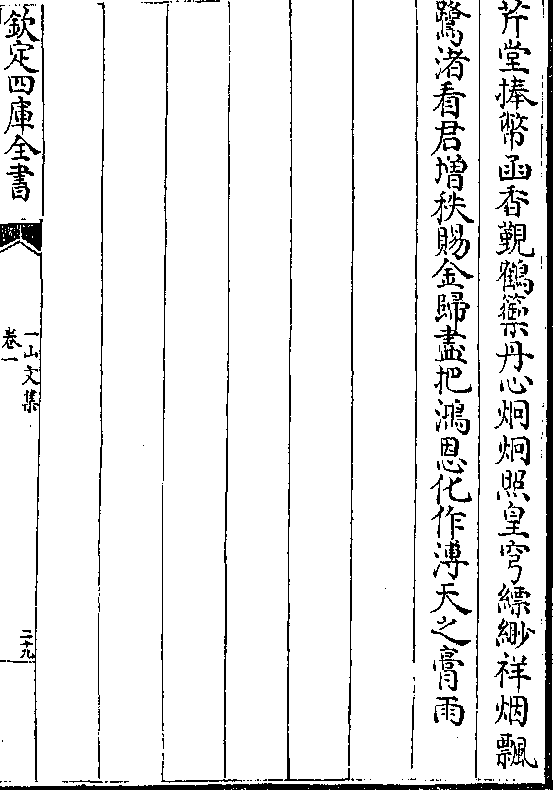 芹堂捧幣函香覲鶴籞丹心炯炯照皇穹縹緲祥烟飄
鷺渚看君增秩賜金歸盡把鴻恩化作溥天之膏雨
欽定四庫全書
一山文集
卷一
二十九